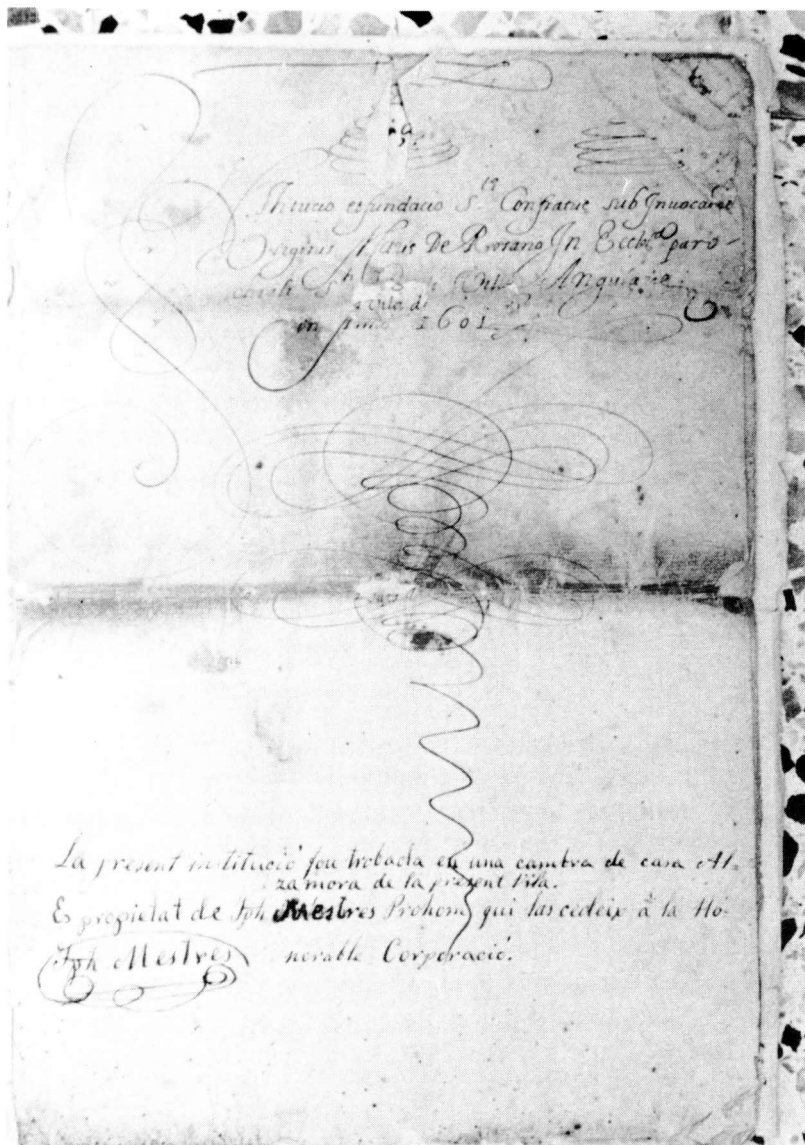 Institucio esfundacio S.ta Confratie sub Invocatione
Virginis Mariæ De Rosario In Eccl. paro-
Anglarie
in 1601
La present institució fou trobada en una cambra de casa Al-
zamora de la present Vila.
Es propietat de Jph Mestres Prohom qui las cedeix à la Ho-
norable Corporació.
Jph Mestres